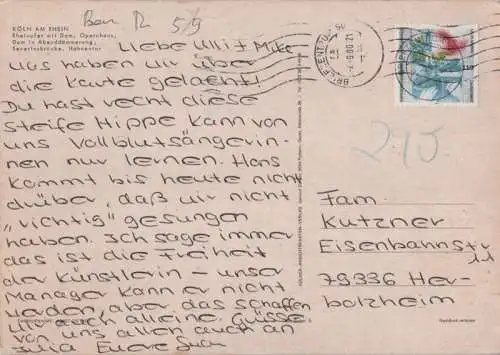 Bon R 5/9
KÖLN AM RHEIN
Rheinufer mit Dom, Opernhaus,
Dom in Abenddämmerung,
Severinsbrücke, Hahnentor
Liebe Ulli + Mike
was haben wir über
die Karte gelacht!
Du hast recht diese
steife Hippe kann von
uns Vollblutsängerin-
nen nur lernen. Hans
kommt bis heute nicht
drüber, daß wir nicht
"richtig" gesungen
haben. Ich sage immer
das ist die Freiheit
der Künstlerin - unser
Manager kann er nicht
werden, aber das schaffen
wir auch alleine. Grüsse
von uns allen auch an
Julia Eure
BRIEFZENTRUM 50
110
240.
Fam
Kutzner
Eisenbahnstr
11
79336 Her-
bolzheim